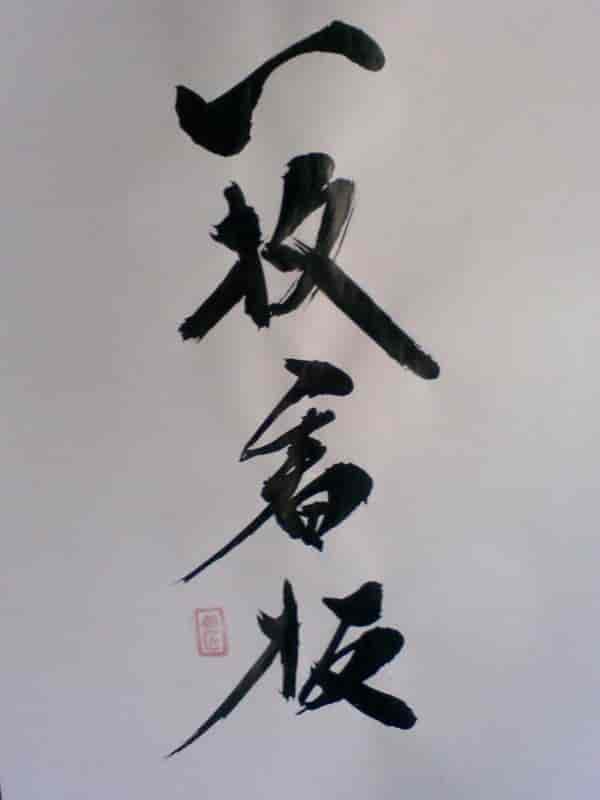 一枚看板